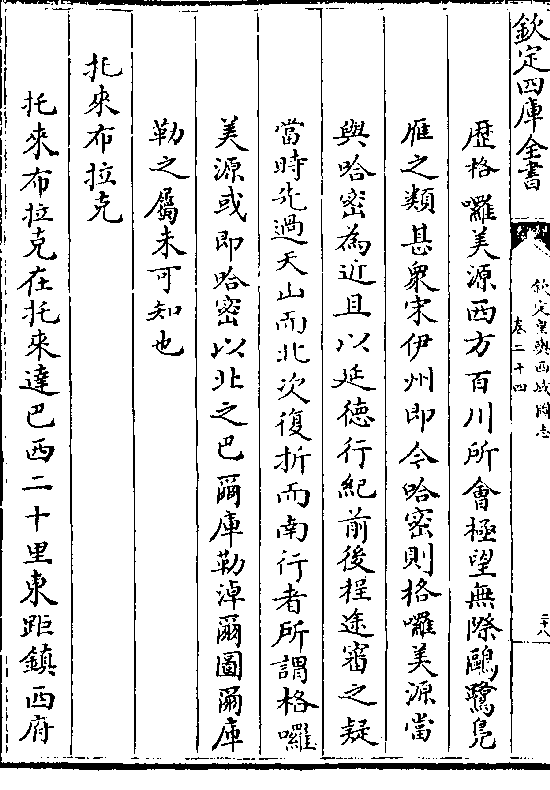 欽定四庫全書
欽定皇輿西域圖志
卷二十四
二十八
歴格囉美源西方百川所會極望無際鷗鷺鳬
雁之類甚衆宋伊州即今哈密則格囉美源當
與哈密為近且以延德行紀前後程途審之疑
當時先過天山而北次復折而南行者所謂格囉
美源或即哈密以北之巴爾庫勒淖爾圖爾庫
勒之屬未可知也
托來布拉克
托來布拉克在托來達巴西二十里東距鎮西府